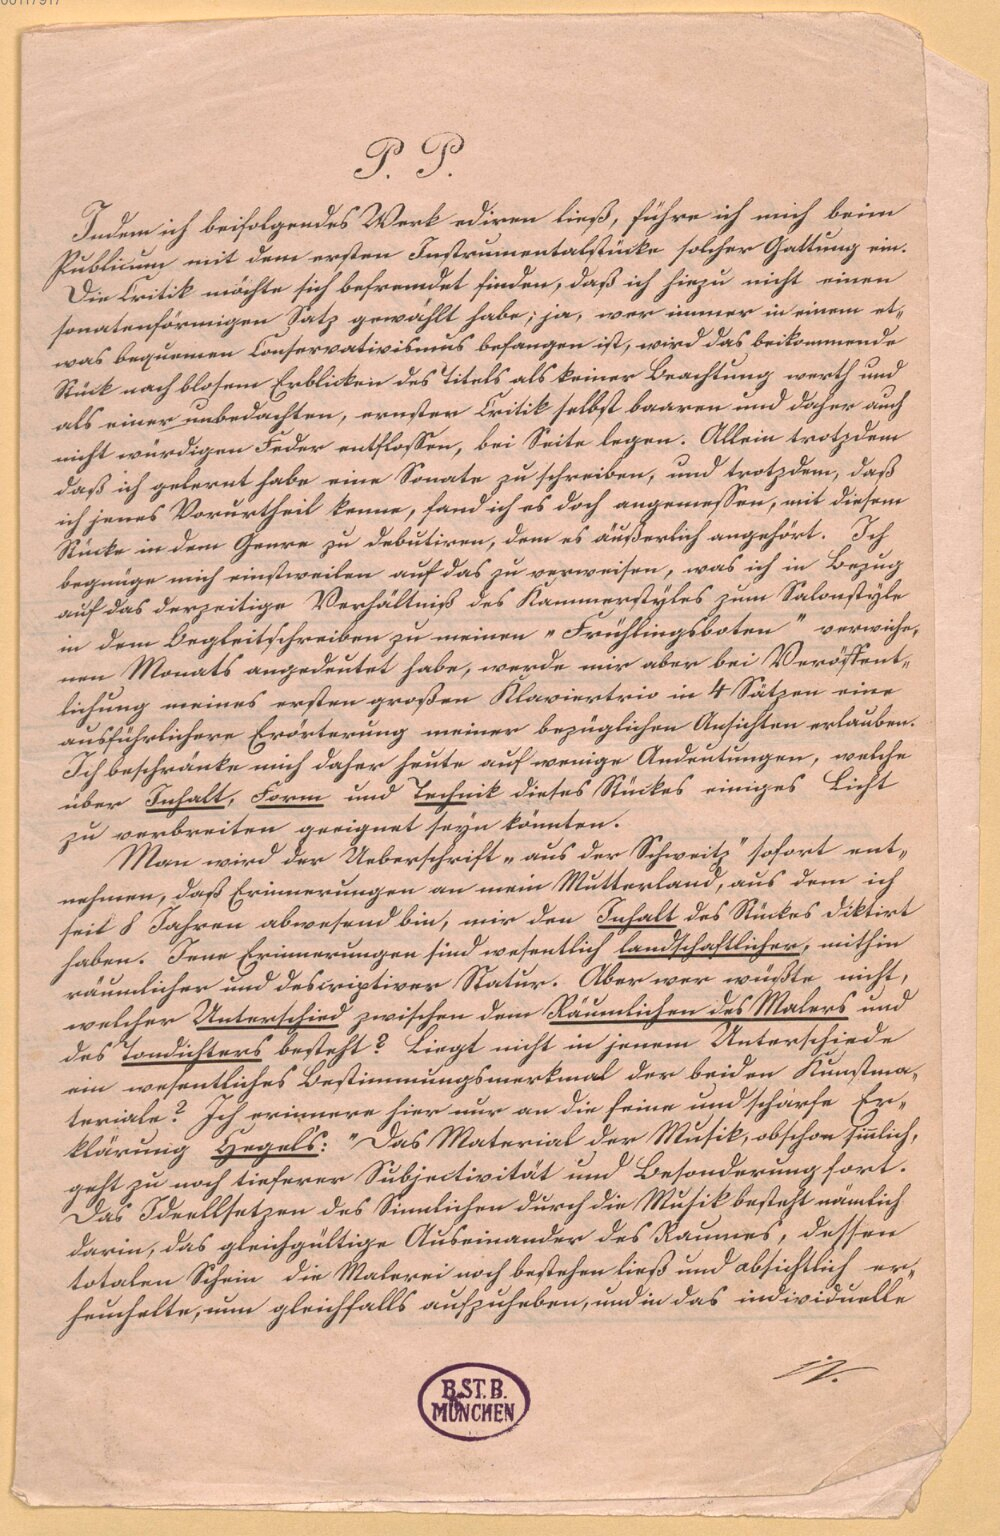 00117917
P. P.
Indem ich beifolgendes Werk ediren ließ, führe ich mich beim
Publicum mit dem ersten Instrumentalstücke solcher Gattung ein.
Die Critik möchte sich befremdet finden, daß ich hiezu nicht einen
sonatenförmigen Satz gewählt habe; ja, wer immer in einem et-
was bequemen Conservativismus befangen ist, wird das beikommende
Stück nach blosem Erblicken des Titels als keiner Beachtung werth und
als einer unbedachten, ernster Critik selbst baaren und daher auch
nicht würdigen Feder entflossen, bei Seite legen. Allein trotzdem
daß ich gelernt habe eine Sonate zu schreiben, und trotzdem, daß
ich jenes Vorurtheil kenne, fand ich es doch angemessen, mit diesem
Stücke in dem Genre zu debutiren, dem es äußerlich angehört. Ich
begnüge mich einstweilen auf das zu verweisen, was ich in Bezug
auf das derzeitige Verhältniß des Kammerstyles zum Salonstyle
in dem Begleitschreiben zu meinen „Frühlingsboten" verwiche-
nen Monats angedeutet habe, werde mir aber bei Veröffent-
lichung meines ersten großen Klaviertrio in 4 Sätzen eine
ausführlichere Erörterung meiner bezüglichen Ansichten erlauben.
Ich beschränke mich daher heute auf wenige Andeutungen, welche
über Inhalt, Form und Technik dieses Stückes einiges Licht
zu verbreiten geeignet seyn könnten.
Man wird der Ueberschrift „aus der Schweitz" sofort ent-
nehmen, daß Erinnerungen an mein Mutterland, aus dem ich
seit 8 Jahren abwesend bin, mir den Inhalt des Stückes diktirt
haben. Jene Erinnerungen sind wesentlich landschaftlicher, mithin
räumlicher und descriptiver Natur. Aber wer wüßte nicht,
welcher Unterschied zwischen dem Räumlichen des Malers und
des Tondichters besteht? Liegt nicht in jenem Unterschiede
ein wesentliches Bestimmungsmerkmal der beiden Kunstma-
teriale? Ich erinnere hier nur an die feine und scharfe Er-
klärung Hegels: "Das Material der Musik, obschon sinnlich,
geht zu noch tieferer Subjectivität und Besonderung fort.
Das Ideellsetzen des Sinnlichen durch die Musik besteht nämlich
darin, das gleichgültige Auseinander des Raumes, dessen
totalen Schein die Malerei noch bestehen ließ und absichtlich er-
heuchelte, nun gleichfalls aufzuheben, und in das individuelle
B.ST.B.
MÜNCHEN